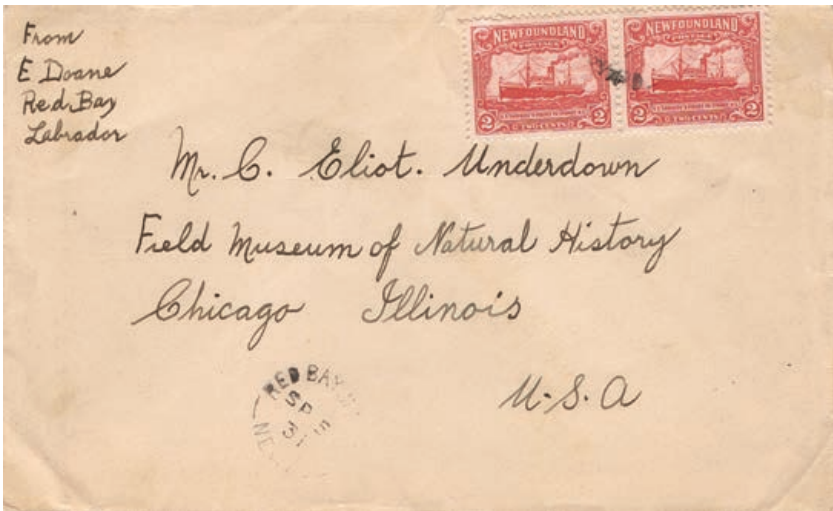 From
E Doane
Red Bay
Labrador
NEWFOUNDLAND
POSTAGE
2 TWO CENTS 2
NEWFOUNDLAND
POSTAGE
2 TWO CENTS 2
Mr. C. Eliot. Underdown
Field Museum of Natural History
Chicago Illinois
U.S.A
RED BAY
SP 5
31
NE